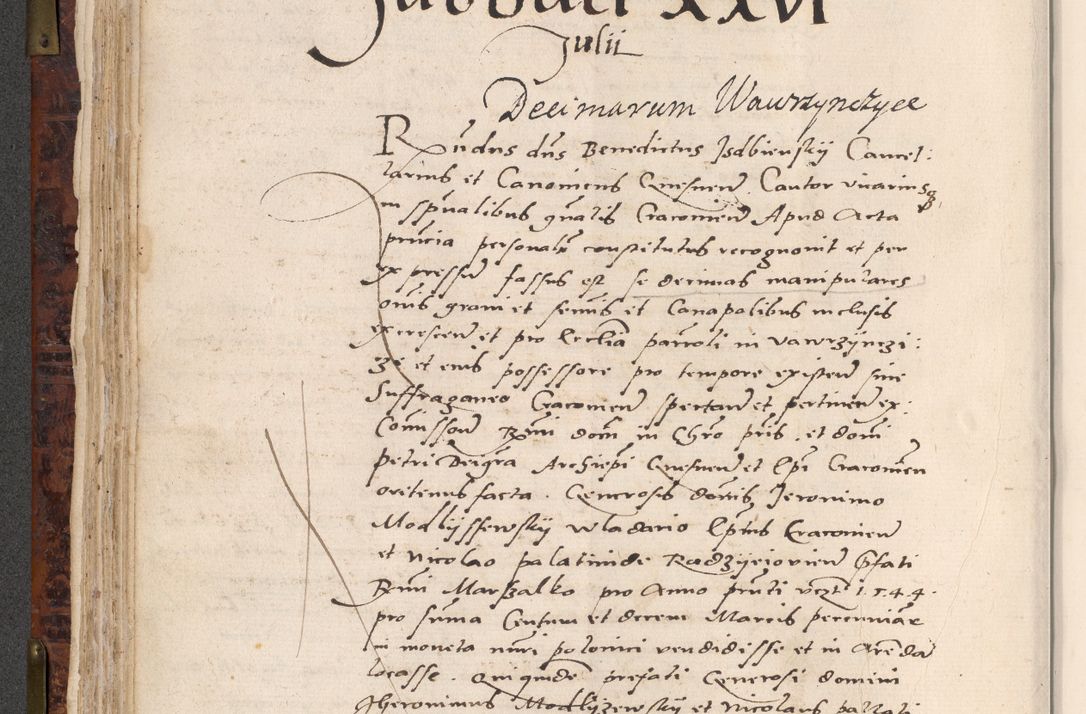 Sabbati XXVI
Julii
Decimarum Wawrzynczyce
Rñdus dñs Benedictus Jsdbienskij Cancel:
larius et Canonicus Gnesneñ. Cantor vicarius
in sp̃ualibus gñalis Cracovieñ Apud Acta
p̃ncia personalr̃ constitutus recognovit et per
expressũ fassus est se decimas manipulares
om̃is grani et semĩs et Canapalibus inclusis
excrescen̄ et pro Ecclĩa parroli in vawrzijnczi:
ze et eius possessore pro tempore existen̄ sive
Suffraganeo Cracovien̄ spectan̄ et pertinen̄ ex:
Com̃isson̄ Rm̃i dom̃ in Chr̃o pr̃is et dom̃i
petri Dei gr̃a Archiep̃i Gnesnen̄ et Ep̃i Cracovien̄
oretenus facta. Generosis dom̃is Jeronimo
Modlijssewskij wladario Ep̃tus Cracovien̄
et Nicolao palatini de Radzijejovien̄ p̃fati
Rm̃i Marszalko pro Anno p̃nti vcz̃t 1544.
pro sum̃a Centum et decem Marcis pecuniar̃
in moneta nũri polonici vendidisse et in Arẽda
locasse. Qui quidẽ prefati Generosi domini
Jheronimus Modlijzewskij et Nicolaus pallati